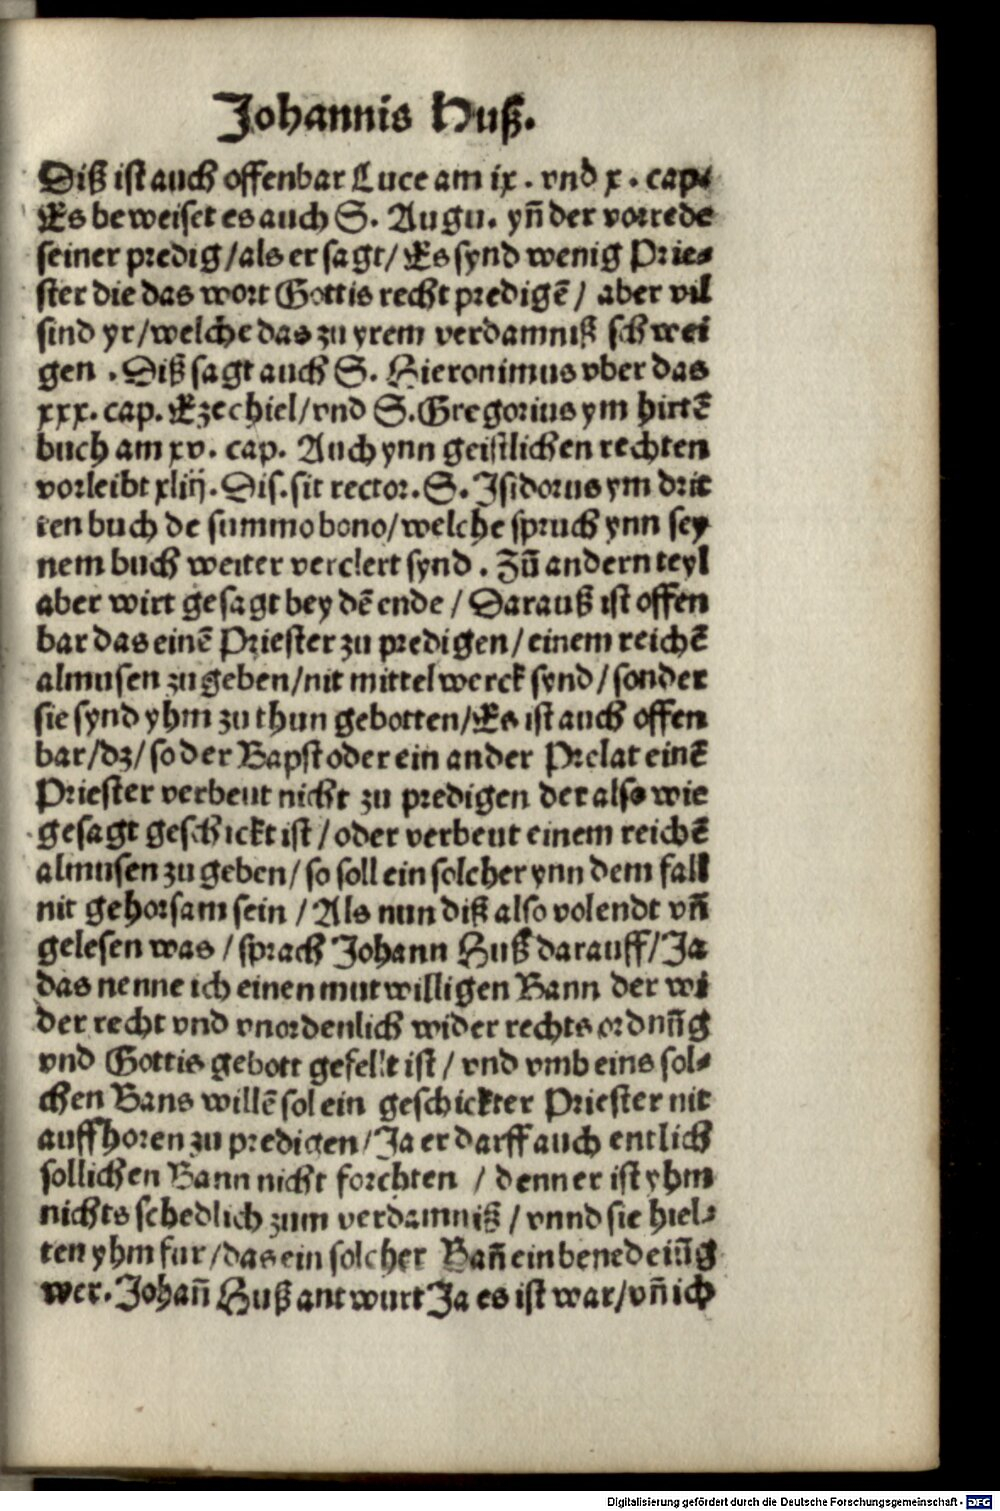 Johannis Huß.
Diß ist auch offenbar Luce am ix. vnd x. cap.
Es beweiset es auch S. Augu. yn̄ der vorrede
seiner predig/als er sagt/Es synd wenig Prie-
ster die das wort Gottis recht predigē/ aber vil
sind yr/welche das zu yrem verdamniß schwei
gen . Diß sagt auch S. Hieronimus vber das
xxx. cap. Ezechiel/vnd S.Gregorius ym hirtē
buch am xv. cap. Auch ynn geistlichen rechten
vorleibt xliij. Dis. sit rector. S. Isidorus ym drit
ten buch de summo bono/welche spruch ynn sey
nem buch weiter verclert synd . Zū andern teyl
aber wirt gesagt bey dē ende / Darauß ist offen
bar das einē Priester zu predigen/einem reichē
almusen zu geben/nit mittel werck synd/sonder
sie synd yhm zu thun gebotten/Es ist auch offen
bar/dz/so der Bapst oder ein ander Prelat einē
Priester verbeut nicht zu predigen der also wie
gesagt geschickt ist/oder verbeut einem reichē
almusen zu geben/ so soll ein solcher ynn dem fall
nit gehorsam sein / Als nun diß also volendt vn̄
gelesen was / sprach Johann Huß darauff/Ja
das nenne ich einen mutwilligen Bann der wi
der recht vnd vnordenlich wider rechts ordnūg
vnd Gottis gebott gefellt ist/ vnd vmb eins sol-
chen Bans willē sol ein geschickter Priester nit
auffhoren zu predigen/Ja er darff auch entlich
sollichen Bann nicht forchten / denn er ist yhm
nichts schedlich zum verdamniß / vnnd sie hiel-
ten yhm fur/das ein solcher Bañ ein benedeiūg
wer. Johañ Huß antwurt Ja es ist war/vn̄ ich
Digitalisierung gefördert durch die Deutsche Forschungsgemeinschaft - DFG